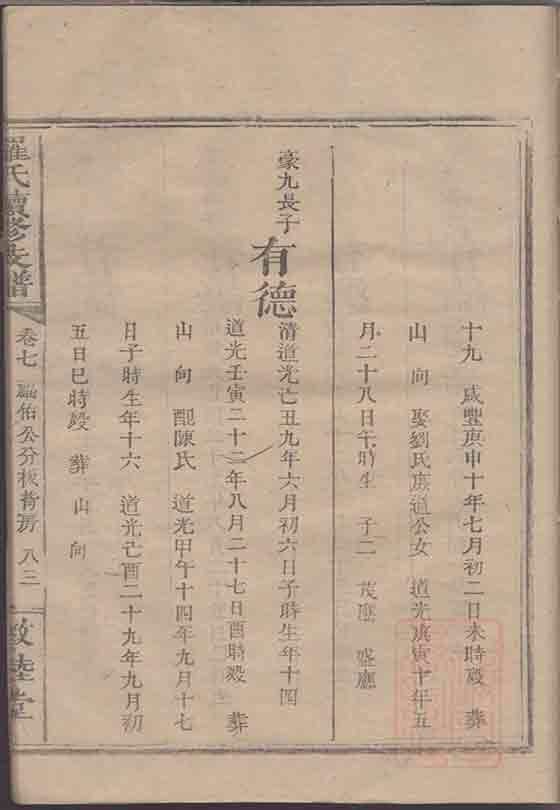 十九 咸豐庚申十年七月初二日未時歿 葬
山 向 娶劉氏庶道公女 道光庚寅十年五
月二十八日午時生 子二 茂應 盛應
豪九長子
有德
清道光己丑九年六月初六日子時生年十四
道光壬寅二十二年八月二十七日酉時歿 葬
山 向 配陳氏 道光甲午十四年九月十七
日子時生年十六 道光己酉二十九年九月初
五日巳時歿 葬 山 向
羅氏續修支譜
卷七 佑公分 房 八三
敦睦堂